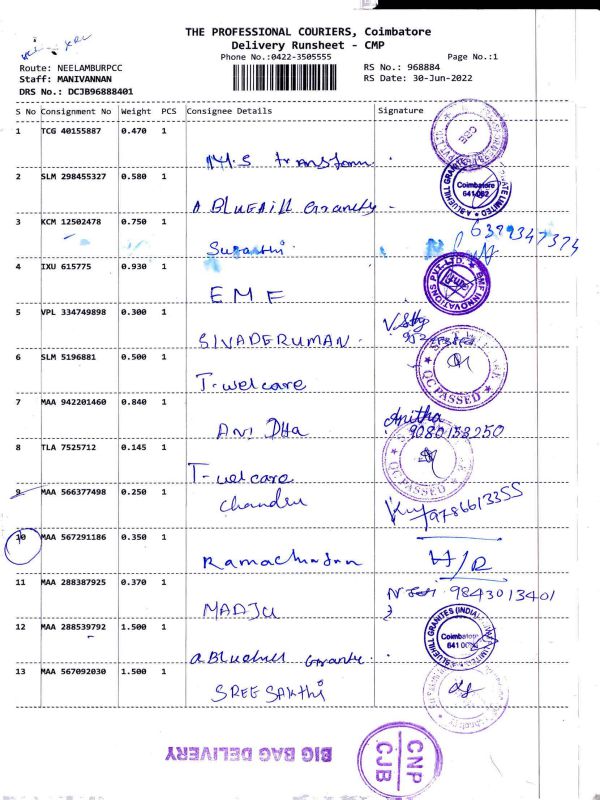 THE PROFESSIONAL COURIERS, Coimbatore
Delivery Runsheet - CMP
Phone No.:0422-3505555
Page No.:1
Route: NEELAMBURPCC
Staff: MANIVANNAN
DRS No.: DCJB96888401
RS No.: 968884
RS Date: 30-Jun-2022
S No Consignment No Weight PCS Consignee Details Signature
1 TCG 40155887 0.470 1
M.S Transform
2 SLM 298455327 0.580 1
Coimbatore
A Bluehill Granety
3 KCM 12502478 0.750 1
6379347374
Suganthi
4 IXU 615775 0.930 1
BMF INNOVATIONS PVT. LTD.
EMF
5 VPL 334749898 0.300 1
SIVADERUMAN
6 SLM 5196881 0.500 1
T-welcare
QC PASSED
7 MAA 942201460 0.840 1
Anitha
9080153250
8 TLA 7525712 0.145 1
T-welcare
QC PASSED
9 MAA 566377498 0.250 1
Chandru
9786613355
10 MAA 567291186 0.350 1
Ramachandran
H/R
11 MAA 288387925 0.370 1
9843013401
MADJU
12 MAA 288539792 1.500 1
Coimbatore
a Bluehill Granite
13 MAA 567092030 1.500 1
SREE SAKTHI
BIG BAG DELIVERY
CNP
CJB